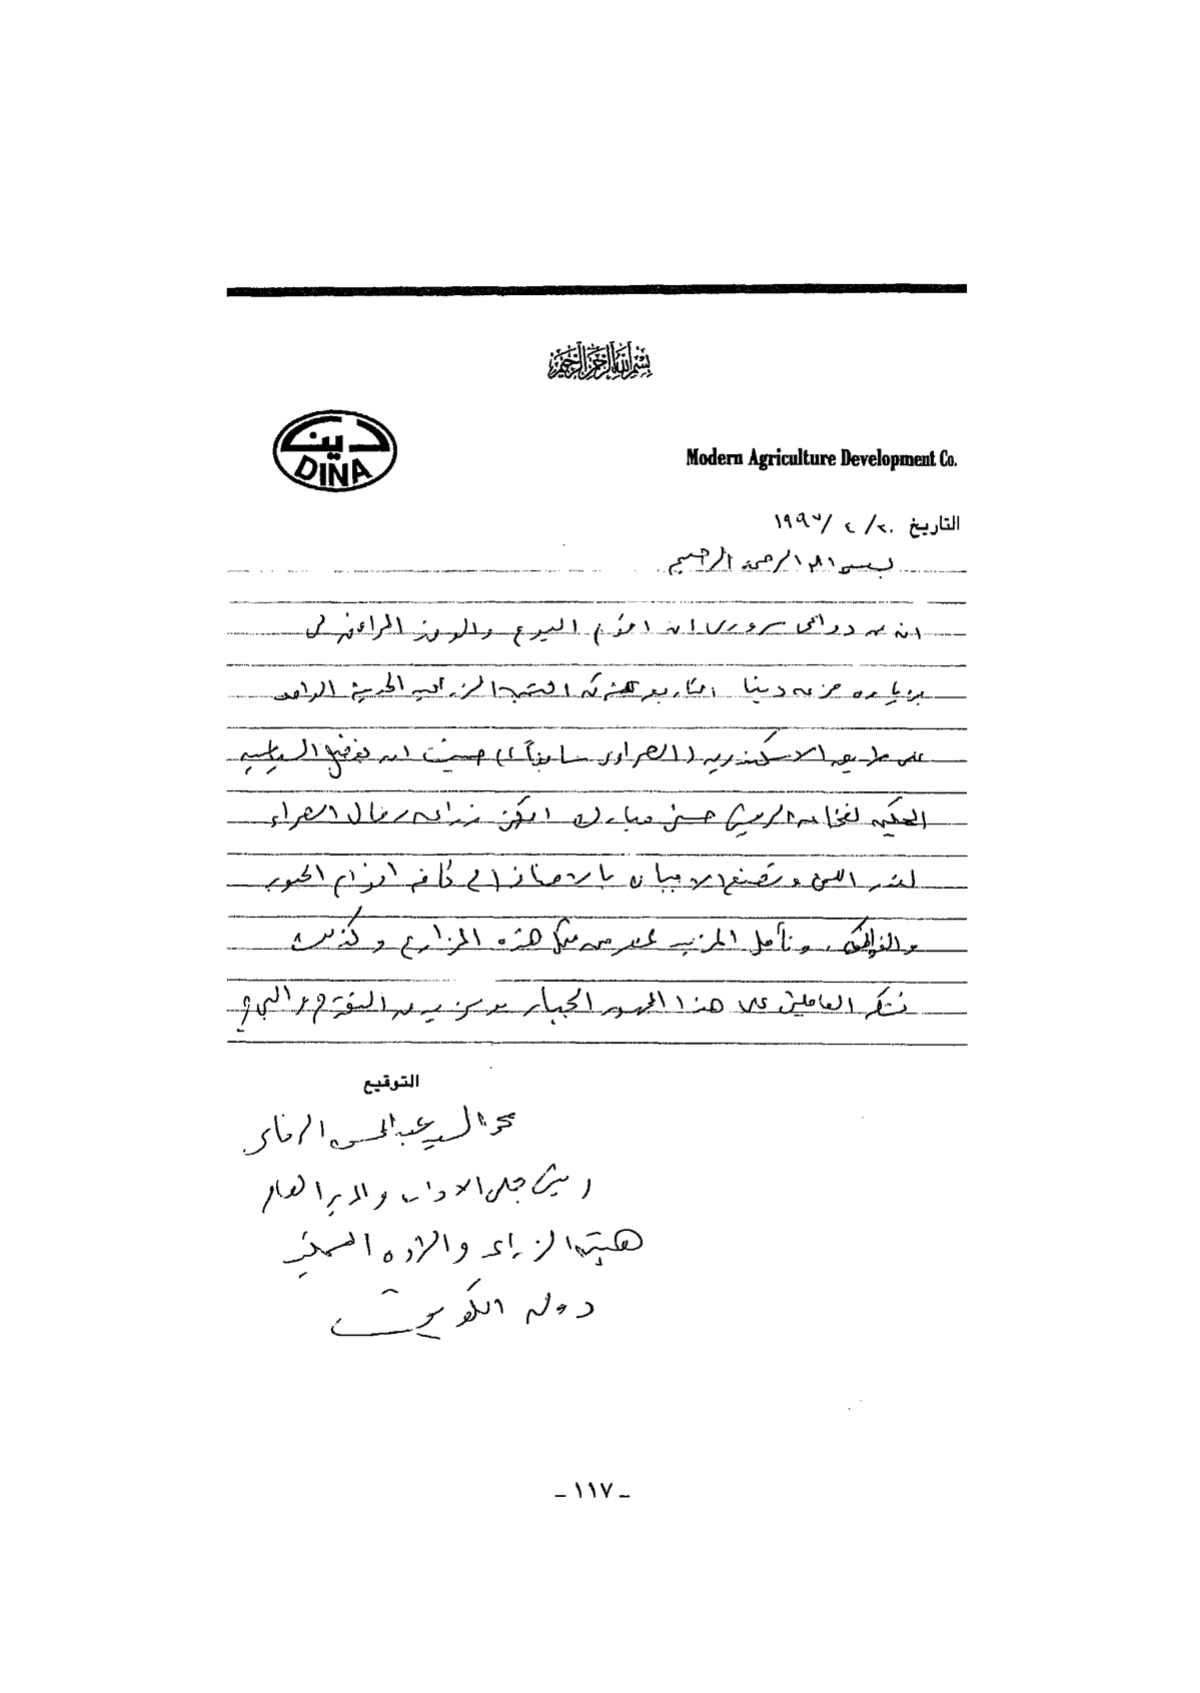 بسم الله الرحمن الرحيم
دينا
DINA
Modern Agriculture Development Co.
التاريخ ٢٠/ ٤ /١٩٩٧
بسم الله الرحمن الرحيم
ان من دواعى سرورى ان اقوم اليوم والوفد المرافق لى
بزيارة مزرعه دينا التابعه لشركه التنميه الزراعيه الحديثة الواقعه
على طريق الاسكندريه (الصحراوى سابقاً) حيث انه بفضل السياسه
الحكيمه لفخامه الرئيس حسنى مبارك امكن زراعه رمال الصحراء
اللبن وتصنيع الالبان بالاضافه الى كافه انواع الحبوب
والفواكه ، ونأمل المزيد من مثل هذه المزارع وكذلك
نشكر العاملين على هذا المجهود الجبار مع مزيد من التقدم والنجاح
التوقيع
السيد عبدالمحسن الرفاعى
رئيس مجلس الادارة والمدير العام
هيئة الزراعه والثروه السمكيه
دولة الكويت
- ١١٧ -